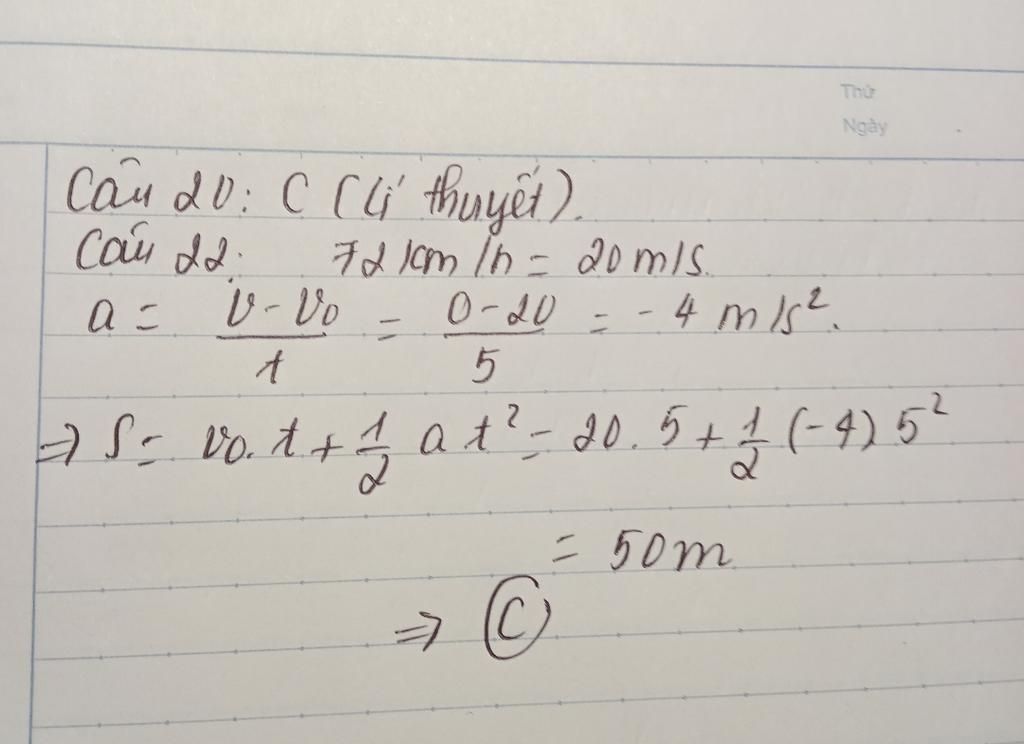 Thứ
Ngày
Câu 20: C (lí thuyết).
Câu 22: 72 km/h = 20 m/s.
a = \frac{v - v_0}{t} = \frac{0 - 20}{5} = -4 m/s².
⇒ S = v_0.t + \frac{1}{2} a t² = 20.5 + \frac{1}{2} (-4) 5²
= 50m
⇒ C